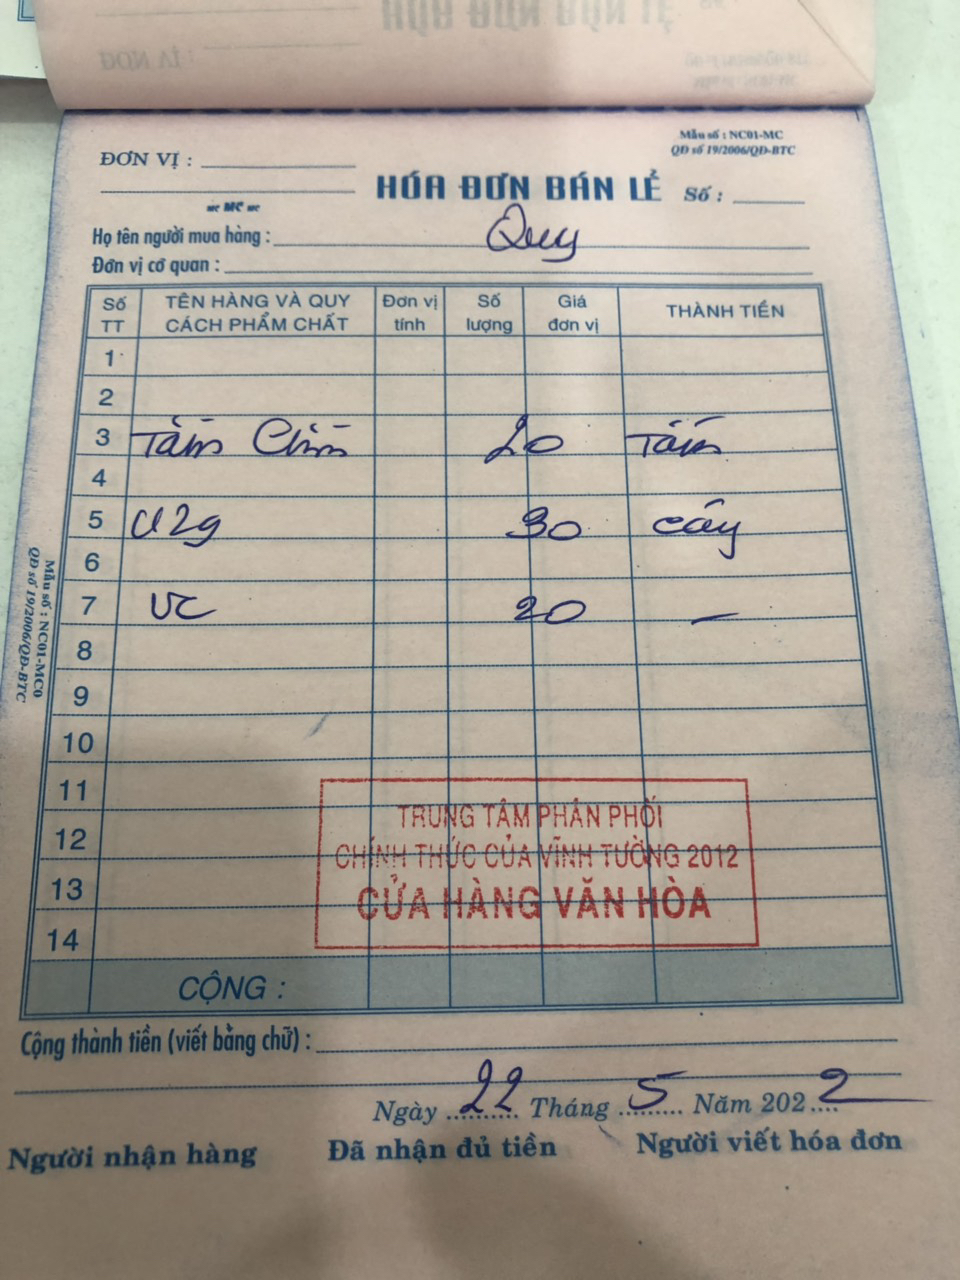 Mẫu số : NC01-MC
QĐ số 19/2006/QĐ-BTC
ĐƠN VỊ :
HÓA ĐƠN BÁN LẺ
Số :
MC
Họ tên người mua hàng : Quy
Đơn vị cơ quan :
Số TT TÊN HÀNG VÀ QUY CÁCH PHẨM CHẤT Đơn vị tính Số lượng Giá đơn vị THÀNH TIỀN
1
2
3 Tấm 20 Tấm
4
5 U29 30 cây
6
7 VC 20 —
8
9
10
11
12
13
14
TRUNG TÂM PHÂN PHỐI
CHÍNH THỨC CỦA VĨNH TƯỜNG 2012
CỬA HÀNG VĂN HÒA
CỘNG :
Cộng thành tiền (viết bằng chữ) :
Ngày 22 Tháng 5 Năm 2022
Người nhận hàng Đã nhận đủ tiền Người viết hóa đơn
Mẫu số : NC01-MC0
QĐ số 19/2006/QĐ-BTC